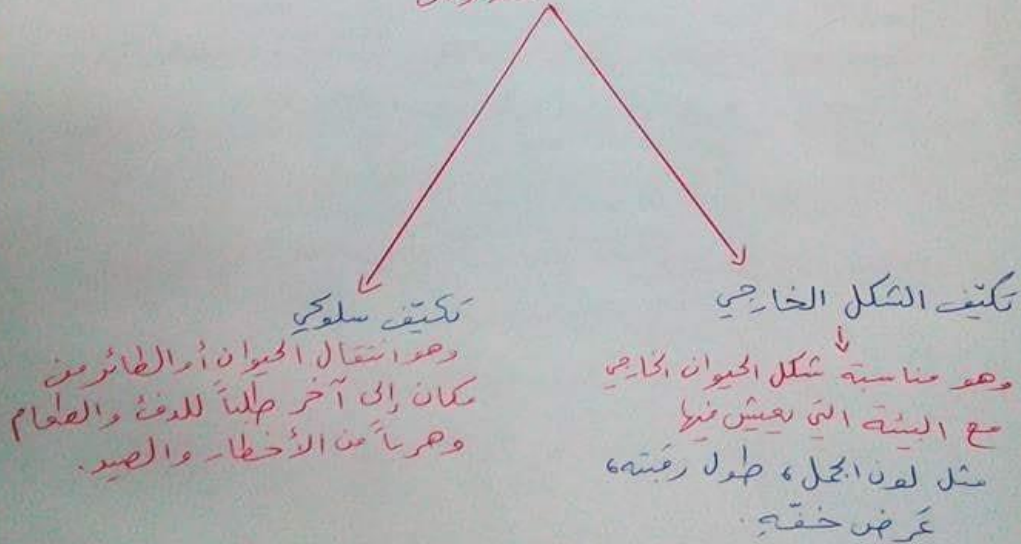 تكيّف الشكل الخارجي
وهو مناسبة شكل الحيوان الخارجي
مع البيئة التي يعيش فيها
مثل لون الجمل، طول رقبته،
عَرض خفّهِ.
تكيّف سلوكي
وهو انتقال الحيوان أو الطائر من
مكان إلى آخر طلباً للدفء والطعام
وهرباً من الأخطار والصيد.